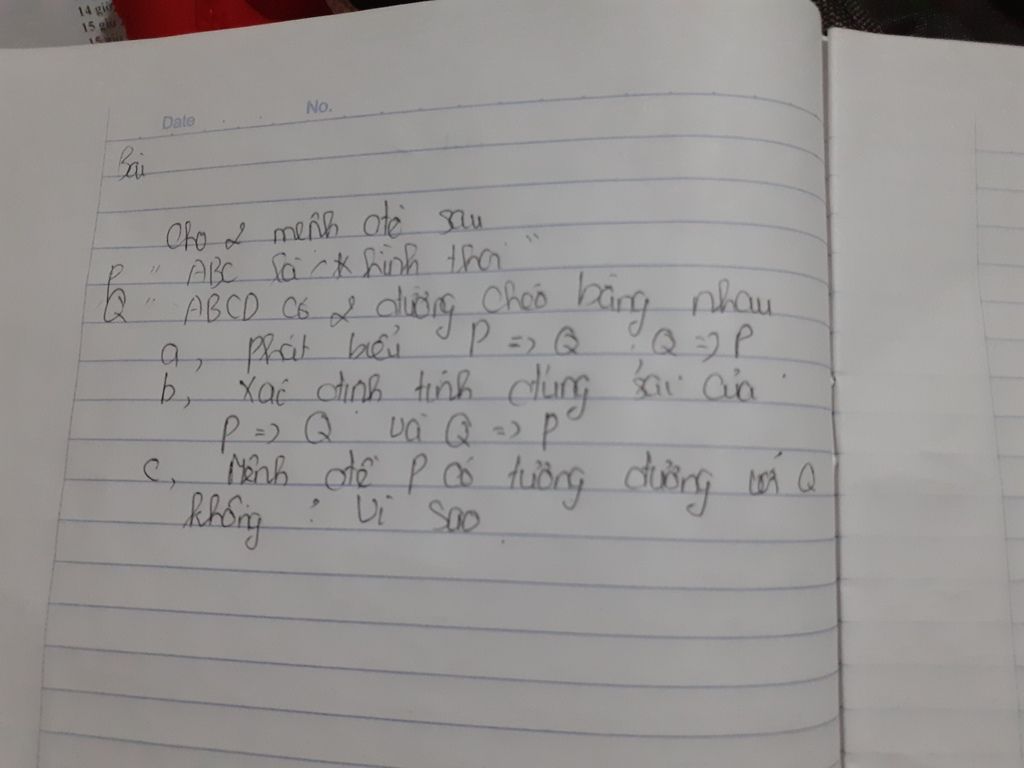 14 giờ
15 giờ
Date No.
Bài
Cho 2 mệnh đề sau
P " ABC là hình thoi "
Q " ABCD có 2 đường chéo bằng nhau
a, phát biểu P => Q : Q => P
b, xác định tính đúng sai của
P => Q và Q => P
c, Mệnh đề P có tương đương với Q
không : Vì sao